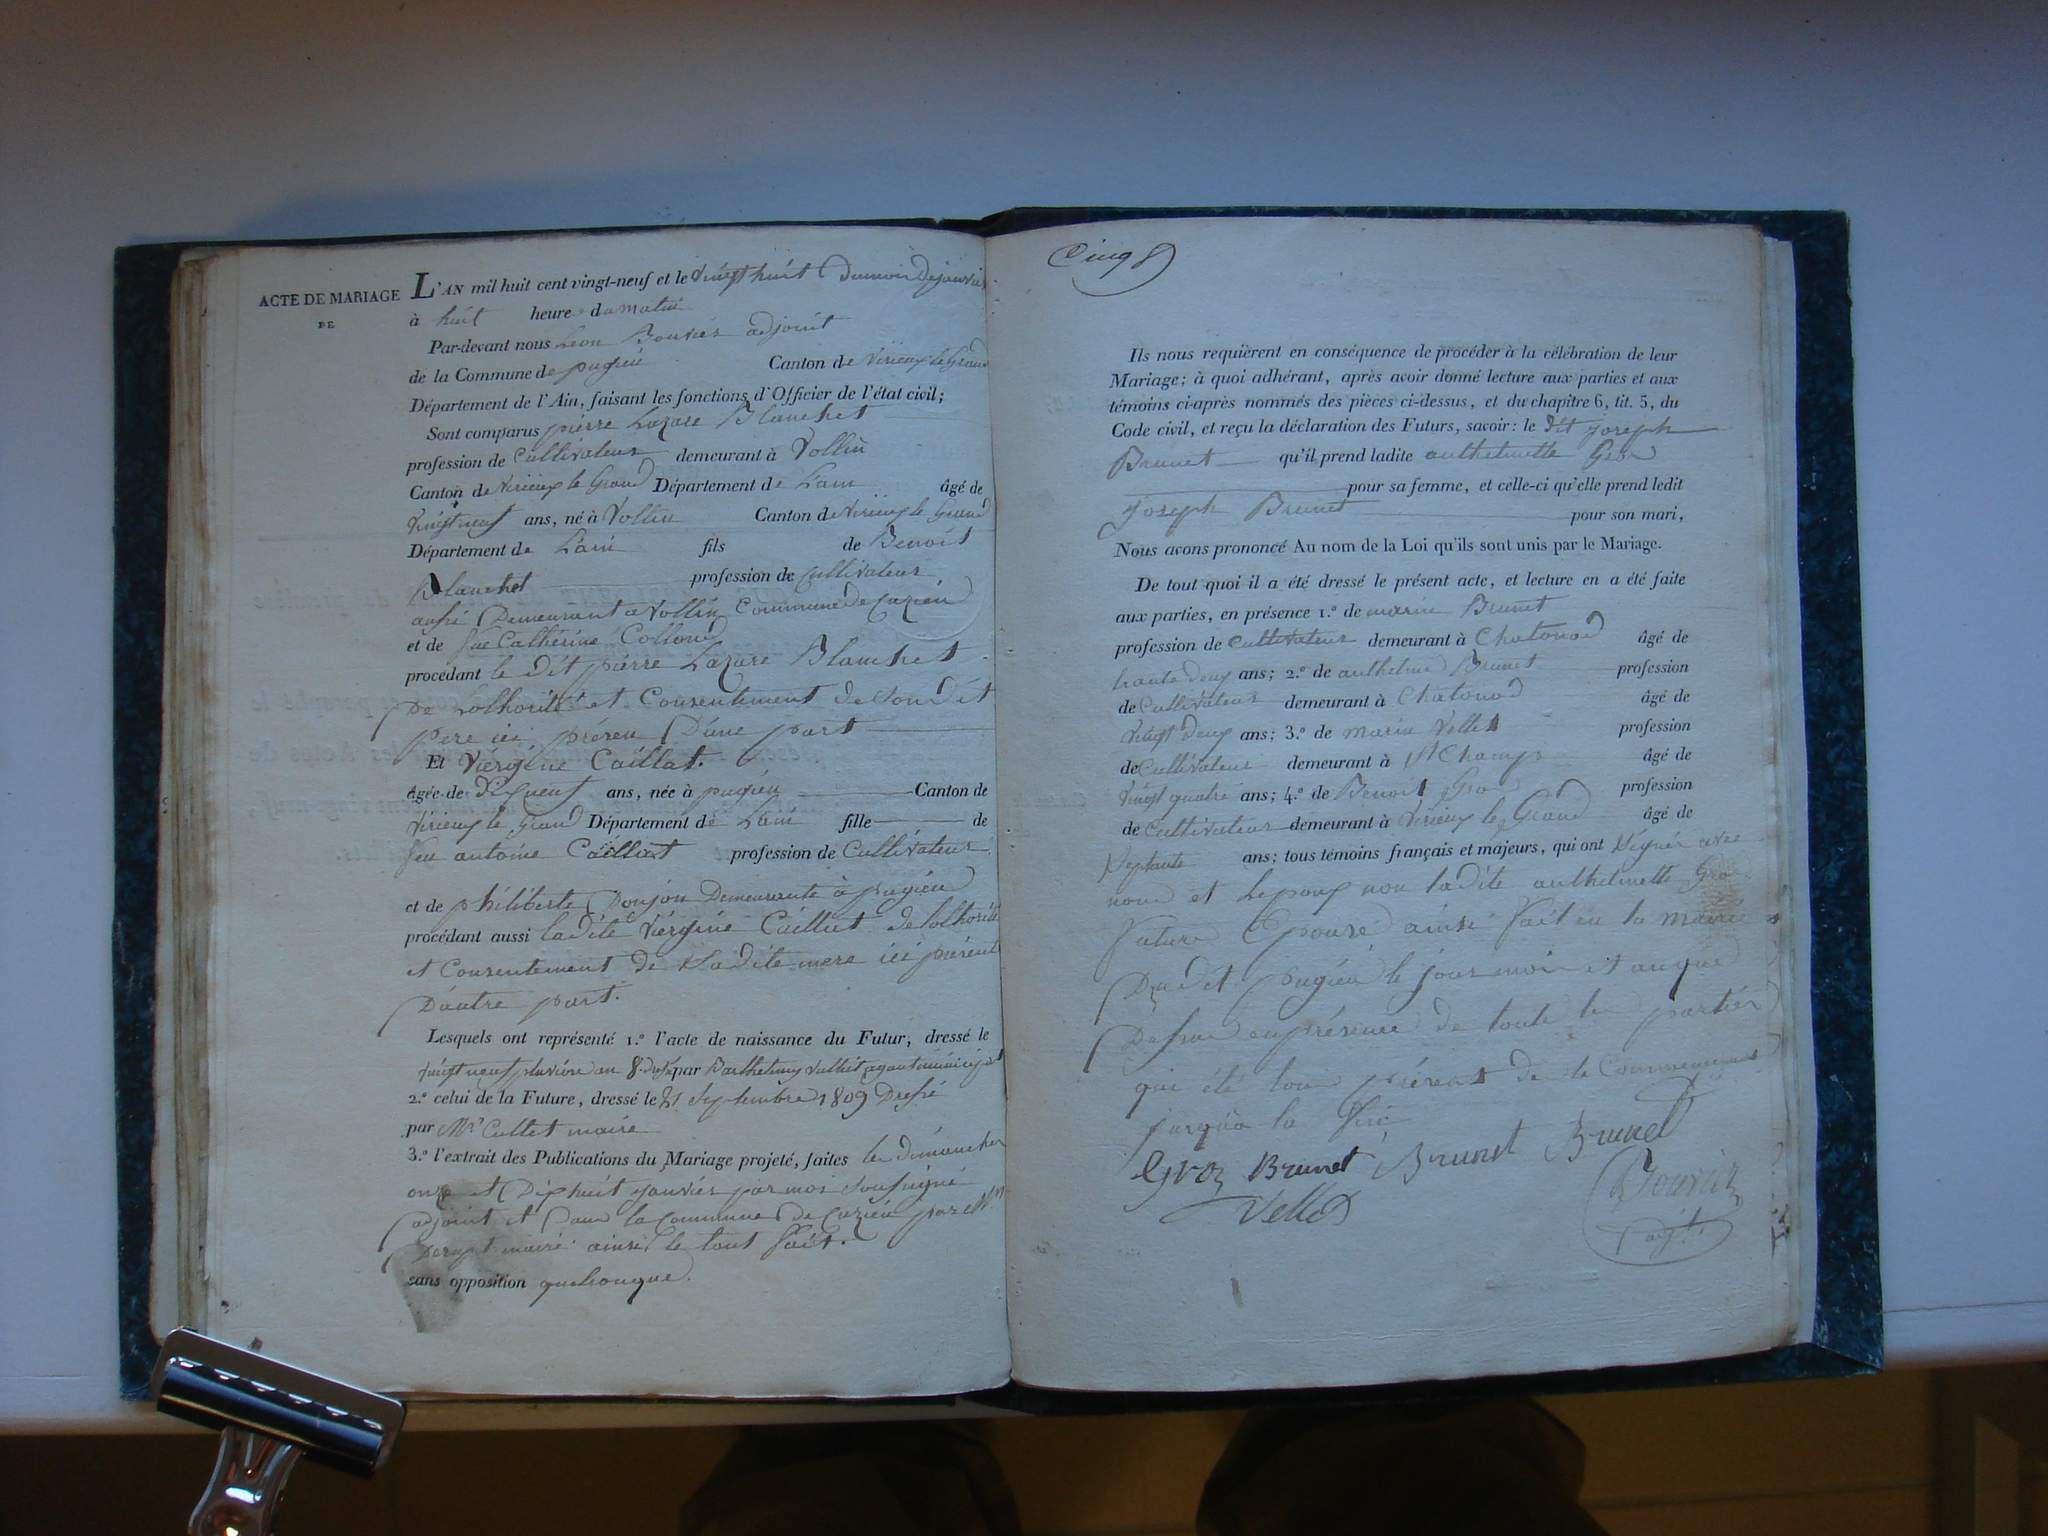 ACTE DE MARIAGE
DE
L'AN mil huit cent vingt-neuf et le vingt huit du mois de janvier
à huit heure du matin
Par-devant nous Léon Bouvier adjoint
de la Commune de pugieu Canton de Virieux le Grand
Département de l'Ain, faisant les fonctions d'Officier de l'état civil;
Sont comparus pierre Lazare Blanchet
profession de Cultivateur demeurant à Vollin
Canton de Virieux le Grand Département de L'ain âgé de
vingt neuf ans, né à Vollin Canton de Virieux le Grand
Département de L'ain fils de Benoit
Blanchet profession de Cultivateur
Demeurant a Vollin Commune de Cuzieu
et de fue Cathérine Colloud
procédant le dit pierre Lazare Blanchet
De Lothorité et Consentement de Son dit
pere ici présen D'une part
Et Viergine Caillat.
âgée de dix neuf ans, née à pugieu Canton de
Virieux le Grand Département de L'ain fille de
feu antoine Caillat profession de Cultivateur
et de philiberte Doujon Demeurante à pugieu
procédant aussi ladite Viergine Caillat de lothorité
et Consentement de Sadite mere ici présente
D'autre part.
Lesquels ont représenté 1.º l'acte de naissance du Futur, dressé le
vingt neuf pluviose an 8. par Barthelemy Vullet agent municipal
2.º celui de la Future, dressé le 21 Septembre 1809 Dressé
par Mr Cullet maire
3.º l'extrait des Publications du Mariage projeté, faites les dimanches
onze et Dix huit janvier par moi Soussigné
adjoint et pour la Commune de Cuzieu par Mr
maire ainsi le tout fait.
sans opposition quelconque.
Cinq
Ils nous requièrent en conséquence de procéder à la célébration de leur
Mariage; à quoi adhérant, après avoir donné lecture aux parties et aux
témoins ci-après nommés des pièces ci-dessus, et du chapitre 6, tit. 5, du
Code civil, et reçu la déclaration des Futurs, savoir: le dit joseph
Brunet qu'il prend ladite anthelmette Gros
pour sa femme, et celle-ci qu'elle prend ledit
joseph Brunet pour son mari,
Nous avons prononcé Au nom de la Loi qu'ils sont unis par le Mariage.
De tout quoi il a été dressé le présent acte, et lecture en a été faite
aux parties, en présence 1.º de marin Brunet
profession de Cultivateur demeurant à Chatonod âgé de
trante deux ans; 2.º de anthelme Brunet profession
de Cultivateur demeurant à Chatonod âgé de
vingt deux ans; 3.º de marin Vellet profession
de Cultivateur demeurant à St Champ âgé de
vingt quatre ans; 4.º de Benoit Gros profession
de Cultivateur demeurant à Virieux le Grand âgé de
Septante ans; tous témoins français et majeurs, qui ont Signer avec
nous et Lepoux non ladite anthelmette Gros
future Epouse ainsi fait en la mairie
Dudit pugieu le jour mois et an que
Dessue en présence de toute les parties
qui été tous présent de le Commencement
jusqua la fin
Gros Brunet Brunet Brunet
Vellet Bouvier
adjt.